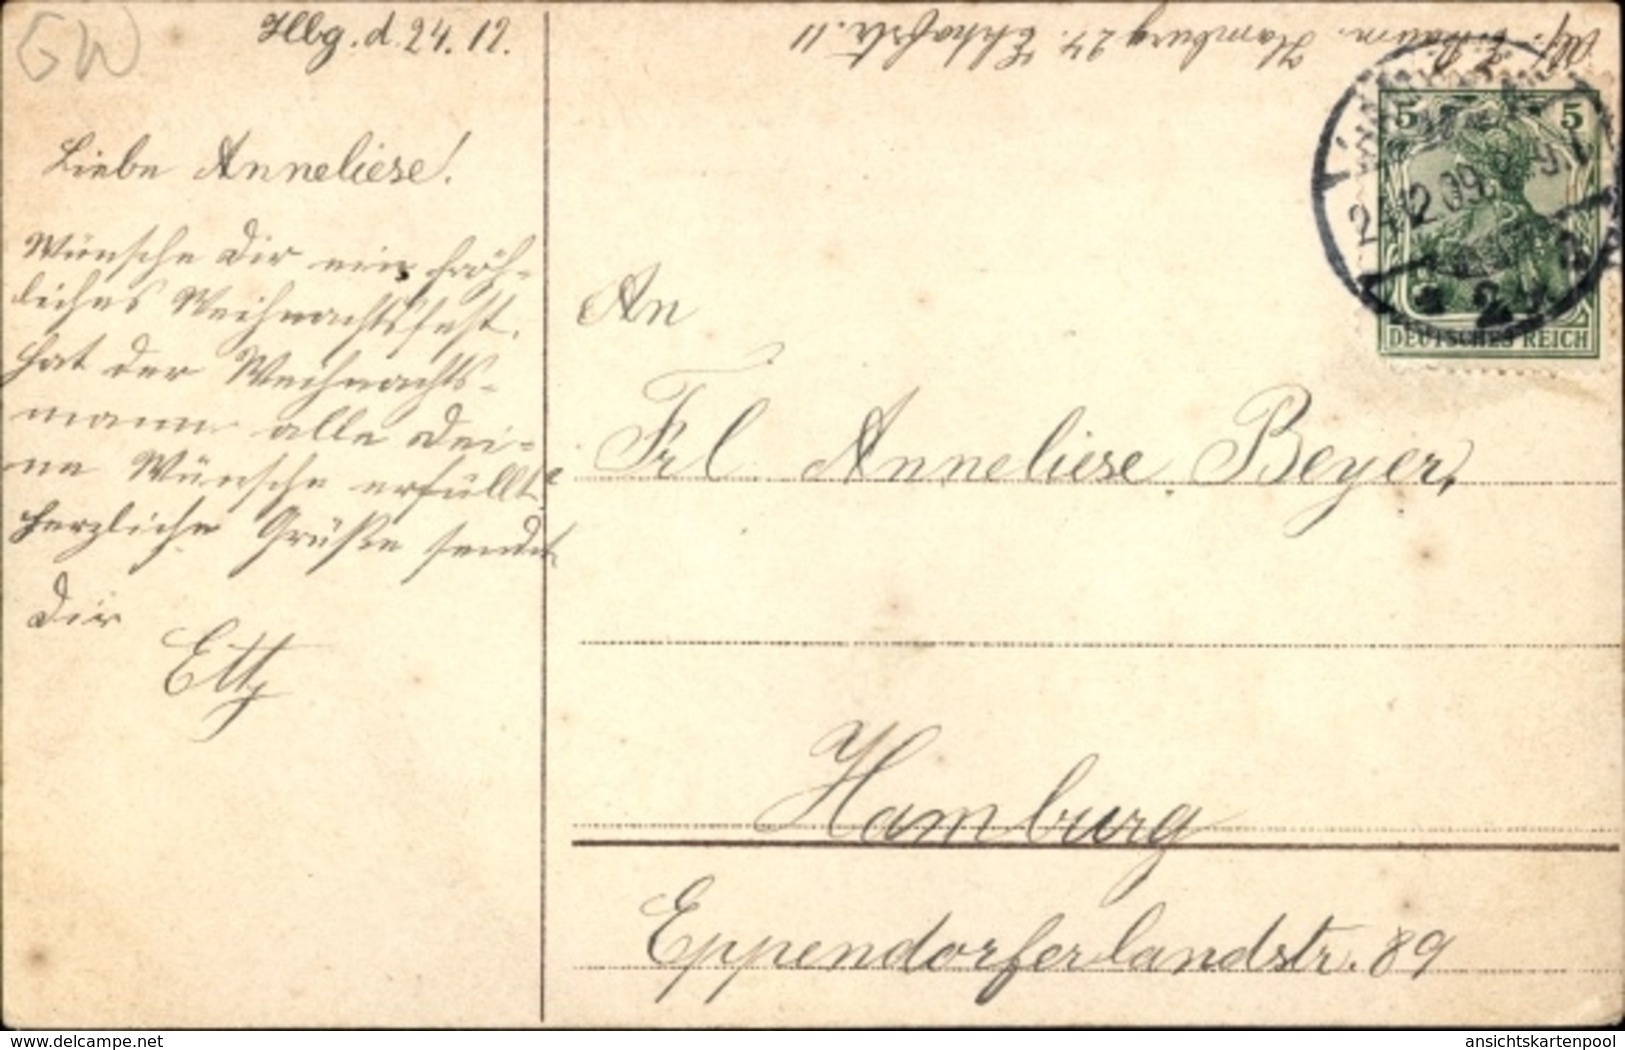 GW
Hbg. d. 24. 12.
Liebe Anneliese!
Wünsche Dir ein fröh-
liches Weihnachtsfest.
Hat der Weihnachts-
mann alle Dei-
ne Wünsche erfüllt?
Herzliche Grüße sendet
Dir
Etty
Hamburg 24. Ekhofstr. 11
5 5
24.12.09.
DEUTSCHES REICH
An
Frl Anneliese Beyer,
Hamburg
Eppendorferlandstr. 89
delcampe.net
ansichtskartenpool